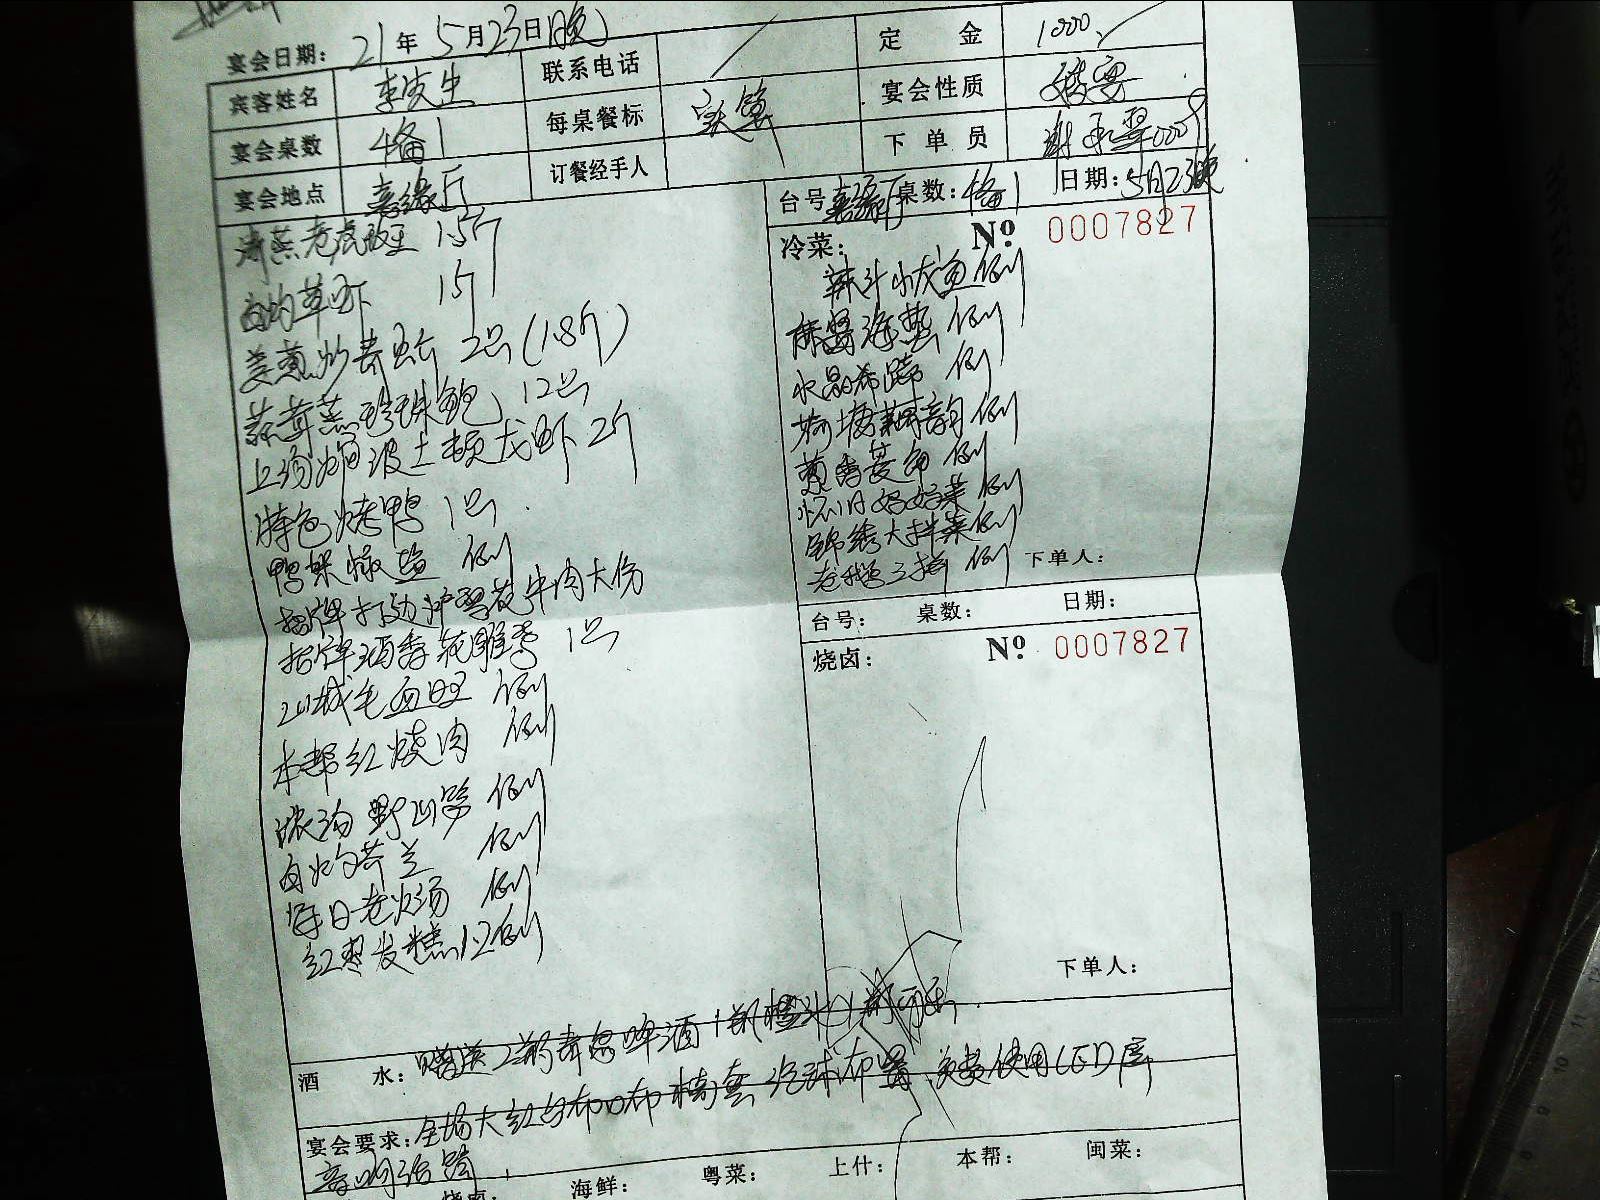 宴会日期: 21年5月23日晚
定金 1000
宾客姓名 李先生 联系电话
宴会性质
宴会桌数 4备1 每桌餐标
下单员
宴会地点 喜缘厅 订餐经手人
台号 喜缘厅 桌数: 4备1 日期: 5月23晚
清蒸老虎斑王 1.5斤
白灼草虾 1斤
姜葱炒青蟹 2只(1.8斤)
蒜茸蒸珍珠鲍 12只
上汤焗波士顿龙虾 2斤
特色烤鸭 1只
鸭架椒盐 例
招牌 雪花牛肉大份
招牌酒香花雕 1只
山城毛血旺 例
本帮红烧肉 例
浓汤野山笋 例
白灼芥兰 例
每日老火汤 例
红枣发糕 12例
冷菜: № 0007827
小龙鱼 例
海蜇 例
水晶肴蹄 例
荷塘藕韵 例
葱香 例
怀旧 菜 例
锦绣大拌菜 例
老鹅三拼 例
下单人:
台号: 桌数: 日期:
烧卤: № 0007827
下单人:
酒水: 赠送2箱青岛啤酒 1箱橙汁 1箱可乐
宴会要求: 全场大红台布口布椅套 汽球布置 使用LED屏
音响话筒
烧卤: 海鲜: 粤菜: 上什: 本帮: 闽菜: